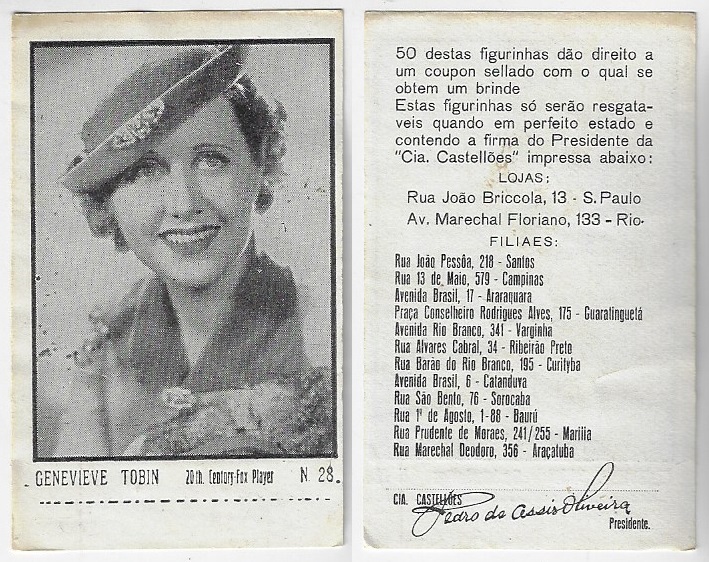 GENEVIEVE TOBIN 20th. Century-Fox Player N. 28.
50 destas figurinhas dão direito a
um coupon sellado com o qual se
obtem um brinde
Estas figurinhas só serão resgata-
veis quando em perfeito estado e
contendo a firma do Presidente da
"Cia. Castellões" impressa abaixo:
LOJAS:
Rua João Briccola, 13 - S. Paulo
Av. Marechal Floriano, 133 - Rio-
FILIAES:
Rua João Pessôa, 218 - Santos
Rua 13 de Maio, 579 - Campinas
Avenida Brasil, 17 - Araraquara
Praça Conselheiro Rodrigues Alves, 175 - Guaratinguetá
Avenida Rio Branco, 341 - Varginha
Rua Alvares Cabral, 34 - Ribeirão Preto
Rua Barão do Rio Branco, 195 - Curityba
Avenida Brasil, 6 - Catanduva
Rua São Bento, 76 - Sorocaba
Rua 1º de Agosto, 1-88 - Baurú
Rua Prudente de Moraes, 241/255 - Marilia
Rua Marechal Deodoro, 356 - Araçatuba
CIA. CASTELLÕES
Pedro de Assis Oliveira
Presidente.